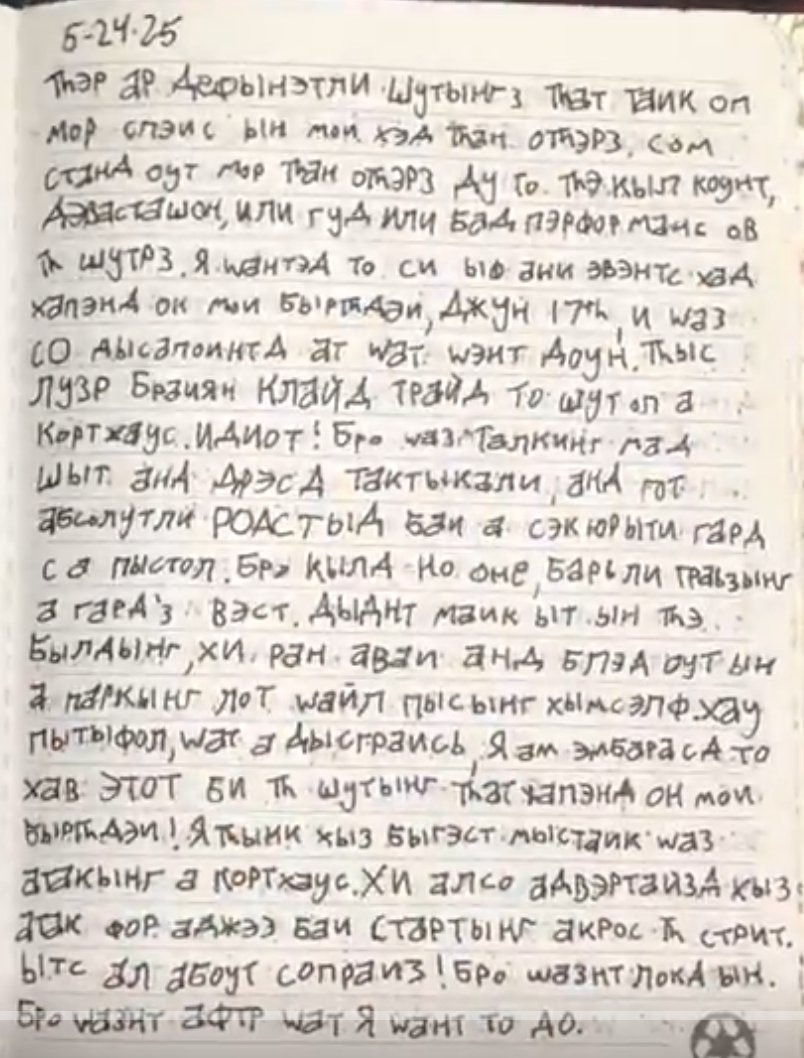 5-24-25
Тhэр ар Дефынэтли шутынгз Тhат таик оп
мор спэис ын мои хэд Тhан отhэрз. Сом
станд оут мор Тhан отhэрз ду то. Тhэ кыл коунт,
Дэвасташон, или гуд или бад пэрформанс ов
Тh шутрз. Я wантэд то си ыф ани эвэнтс хад
хапэнд он мои быртhдэи, Джун 17th, и wаз
со дысапоинтд ат wат wэнт доун. Тhыс
лузр Браиян Клайд трайд то шут оп а
кортхаус. Идиот! Бро wаз Талкинг мад
шыт анд дрэсд тактыкали, анд гот
абсолутли РОАСТЫД баи а сэкюрыти гард
с а пыстол. Бро кылд но оне, барьли граьзынг
а гард'з вэст. Дыднт маик ыт ын Тhэ
былдынг, хи ран аваи анд блэд оут ын
а паркынг лот wайл пысынг хымсэлф. Хау
пытыфол, wат а дысграись, Я ам эмбарасд то
хав этот би Тh шутынг Тhат хапэнд он мои
быртhдэи! Я Тhынк хыз быгэст мыстаик wаз
атакынг а кортхаус. Хи алсо адвэртаизд хыз
атак фор аджэз баи стартынг акрос Тh стрит.
Ытс ал абоут сопраиз! Бро wазнт локд ын.
Бро wазнт афтр wат Я wант то до.